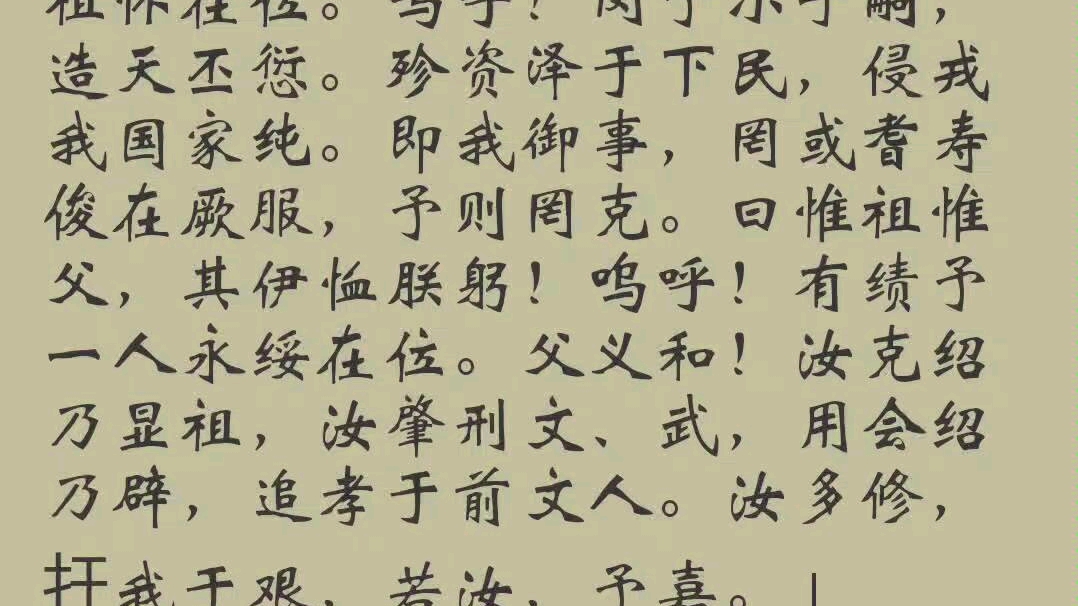 祖怀在位。呜呼！闵予小子嗣，
造天丕愆。殄资泽于下民，侵戎
我国家纯。即我御事，罔或耆寿
俊在厥服，予则罔克。曰惟祖惟
父，其伊恤朕躬！呜呼！有绩予
一人永绥在位。父义和！汝克绍
乃显祖，汝肇刑文、武，用会绍
乃辟，追孝于前文人。汝多修，
扞我于艰，若汝，予嘉。